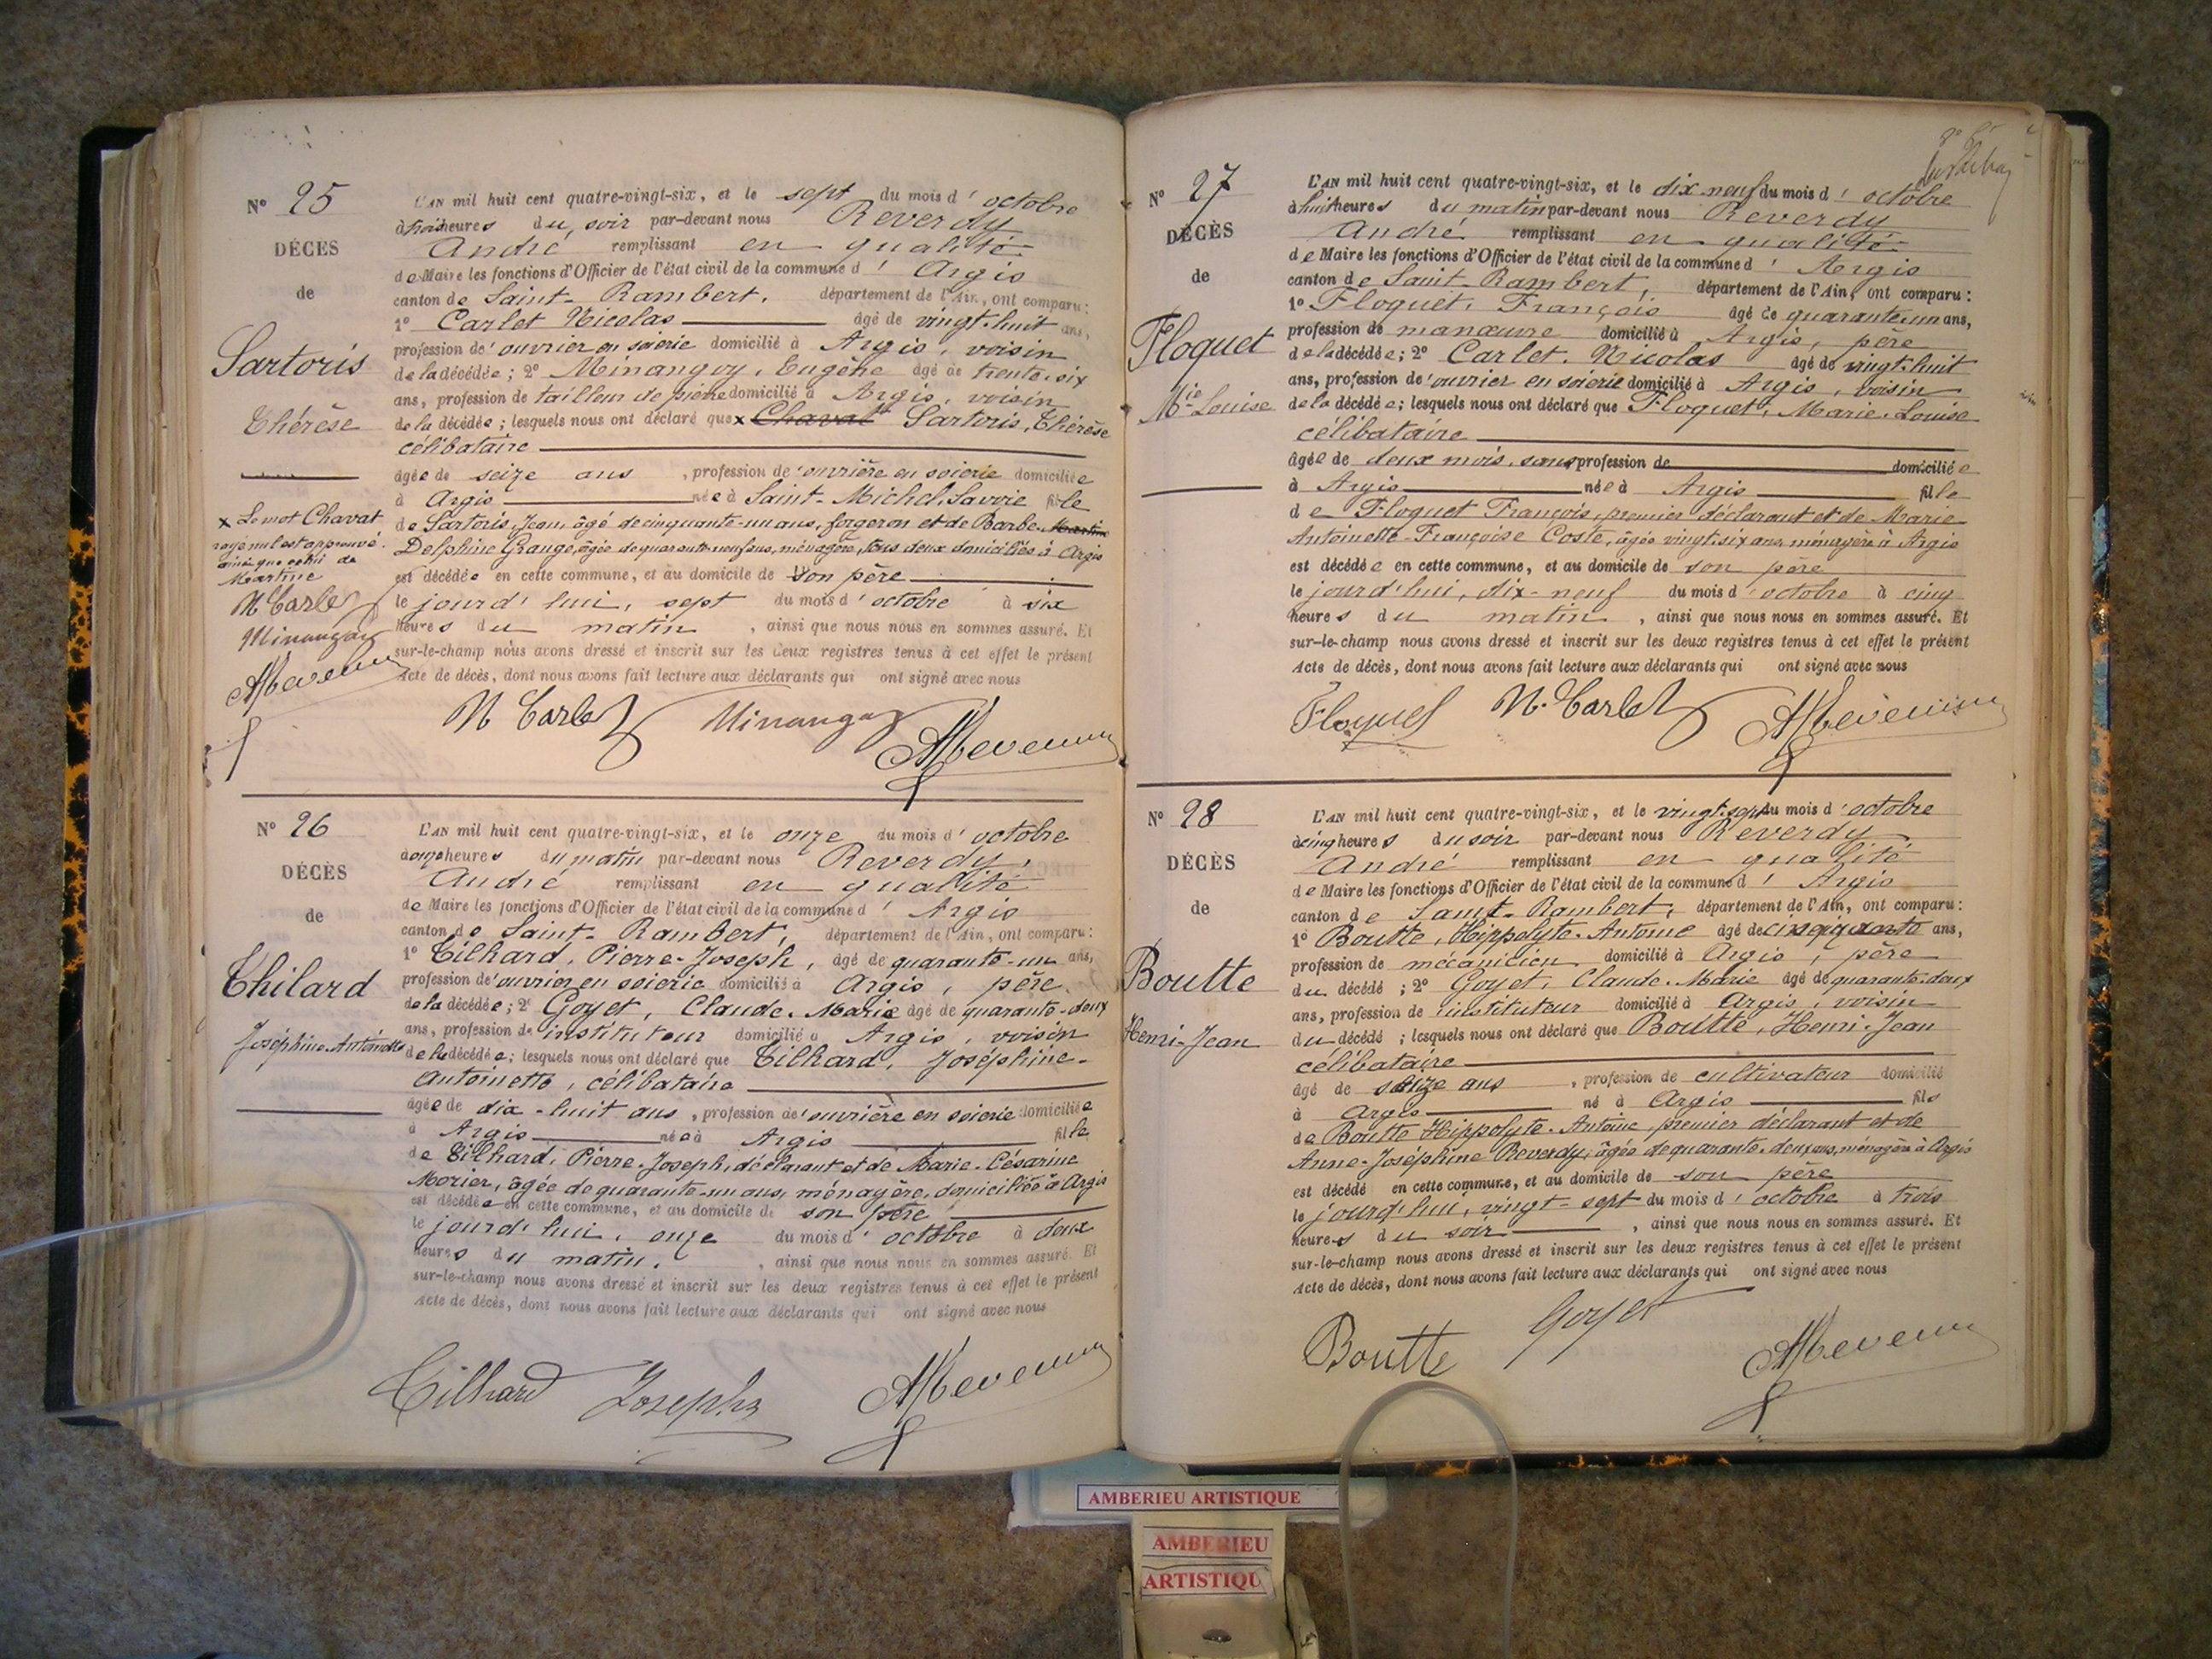 N° 25
DÉCÈS
de
Sartoris
Thérèse
x Le mot Chavat
rayé nul est approuvé.
ainsi que celui de
Martine
N Carlet
Minangoy
L'AN mil huit cent quatre-vingt-six, et le sept du mois d'octobre
à trois heures du soir par-devant nous Reverdy
André remplissant en qualité
de Maire les fonctions d'Officier de l'état civil de la commune d'Argis
canton de Saint-Rambert, département de l'Ain, ont comparu:
1° Carlet Nicolas âgé de vingt-huit ans,
profession d'ouvrier en soierie domicilié à Argis, voisin
de la décédée; 2° Minangoy, Eugène âgé de trente-six
ans, profession de tailleur de pierre domicilié à Argis, voisin
de la décédée; lesquels nous ont déclaré que x Chavat Sartoris, Thérèse
célibataire
âgée de seize ans, profession d'ouvrière en soierie domiciliée
à Argis née à Saint-Michel, Savoie fille
de Sartoris, Jean, âgé de cinquante-un ans, forgeron et de Barbe-Martine
Delphine Grange, âgée de quarante-neuf ans, ménagère, tous deux domiciliés à Argis
est décédée en cette commune, et au domicile de son père
le jourd'hui, sept du mois d'octobre à six
heures du matin, ainsi que nous nous en sommes assuré. Et
sur-le-champ nous avons dressé et inscrit sur les deux registres tenus à cet effet le présent
Acte de décès, dont nous avons fait lecture aux déclarants qui ont signé avec nous
N Carlet Minangoy
N° 26
DÉCÈS
de
Thilard
Joséphine-Antoinette
L'AN mil huit cent quatre-vingt-six, et le onze du mois d'octobre
à onze heures du matin par-devant nous Reverdy,
André remplissant en qualité
de Maire les fonctions d'Officier de l'état civil de la commune d'Argis
canton de Saint-Rambert, département de l'Ain, ont comparu:
1° Tilhard, Pierre-Joseph, âgé de quarante-un ans,
profession d'ouvrier en soierie domicilié à Argis, père
de la décédée; 2° Goyet, Claude-Marie âgé de quarante-deux
ans, profession de instituteur domicilié à Argis, voisin
de la décédée; lesquels nous ont déclaré que Tilhard, Joséphine-
Antoinette, célibataire
âgée de dix-huit ans, profession d'ouvrière en soierie domiciliée
à Argis née à Argis fille
de Tilhard, Pierre-Joseph, déclarant et de Marie-Césarine
Morier, âgée de quarante-un ans, ménagère, domiciliée à Argis
est décédée en cette commune, et au domicile de son père
le jourd'hui, onze du mois d'octobre à deux
heures du matin, ainsi que nous nous en sommes assuré. Et
sur-le-champ nous avons dressé et inscrit sur les deux registres tenus à cet effet le présent
Acte de décès, dont nous avons fait lecture aux déclarants qui ont signé avec nous
Tilhard Joseph
N° 27
DÉCÈS
de
Floquet
Mie Louise
L'AN mil huit cent quatre-vingt-six, et le dix-neuf du mois d'octobre
à huit heures du matin par-devant nous Reverdy
André remplissant en qualité
de Maire les fonctions d'Officier de l'état civil de la commune d'Argis
canton de Saint-Rambert, département de l'Ain, ont comparu:
1° Floquet, François âgé de quarante-un ans,
profession de manœuvre domicilié à Argis, père
de la décédée; 2° Carlet, Nicolas âgé de vingt-huit
ans, profession d'ouvrier en soierie domicilié à Argis, voisin
de la décédée; lesquels nous ont déclaré que Floquet, Marie-Louise
célibataire
âgée de deux mois, sans profession de domiciliée
à Argis née à Argis fille
de Floquet François, premier déclarant et de Marie
Antoinette-Françoise Coste, âgée vingt-six ans, ménagère à Argis
est décédée en cette commune, et au domicile de son père
le jourd'hui, dix-neuf du mois d'octobre à cinq
heures du matin, ainsi que nous nous en sommes assuré. Et
sur-le-champ nous avons dressé et inscrit sur les deux registres tenus à cet effet le présent
Acte de décès, dont nous avons fait lecture aux déclarants qui ont signé avec nous
Floquet N. Carlet
N° 28
DÉCÈS
de
Boutte
Henri-Jean
L'AN mil huit cent quatre-vingt-six, et le vingt-sept du mois d'octobre
à cinq heures du soir par-devant nous Reverdy
André remplissant en qualité
de Maire les fonctions d'Officier de l'état civil de la commune d'Argis
canton de Saint-Rambert, département de l'Ain, ont comparu:
1° Boutte, Hippolyte-Antoine âgé de cinquante ans,
profession de mécanicien domicilié à Argis, père
du décédé; 2° Goyet, Claude-Marie âgé de quarante-deux
ans, profession de instituteur domicilié à Argis, voisin
du décédé; lesquels nous ont déclaré que Boutte, Henri-Jean
célibataire
âgé de seize ans, profession de cultivateur domicilié
à Argis né à Argis fils
de Boutte Hippolyte-Antoine, premier déclarant et de
Anne-Joséphine Reverdy, âgée de quarante-deux ans, ménagère à Argis
est décédé en cette commune, et au domicile de son père
le jourd'hui, vingt-sept du mois d'octobre à trois
heures du soir, ainsi que nous nous en sommes assuré. Et
sur-le-champ nous avons dressé et inscrit sur les deux registres tenus à cet effet le présent
Acte de décès, dont nous avons fait lecture aux déclarants qui ont signé avec nous
Boutte Goyet
AMBERIEU ARTISTIQUE
AMBERIEU
ARTISTIQU